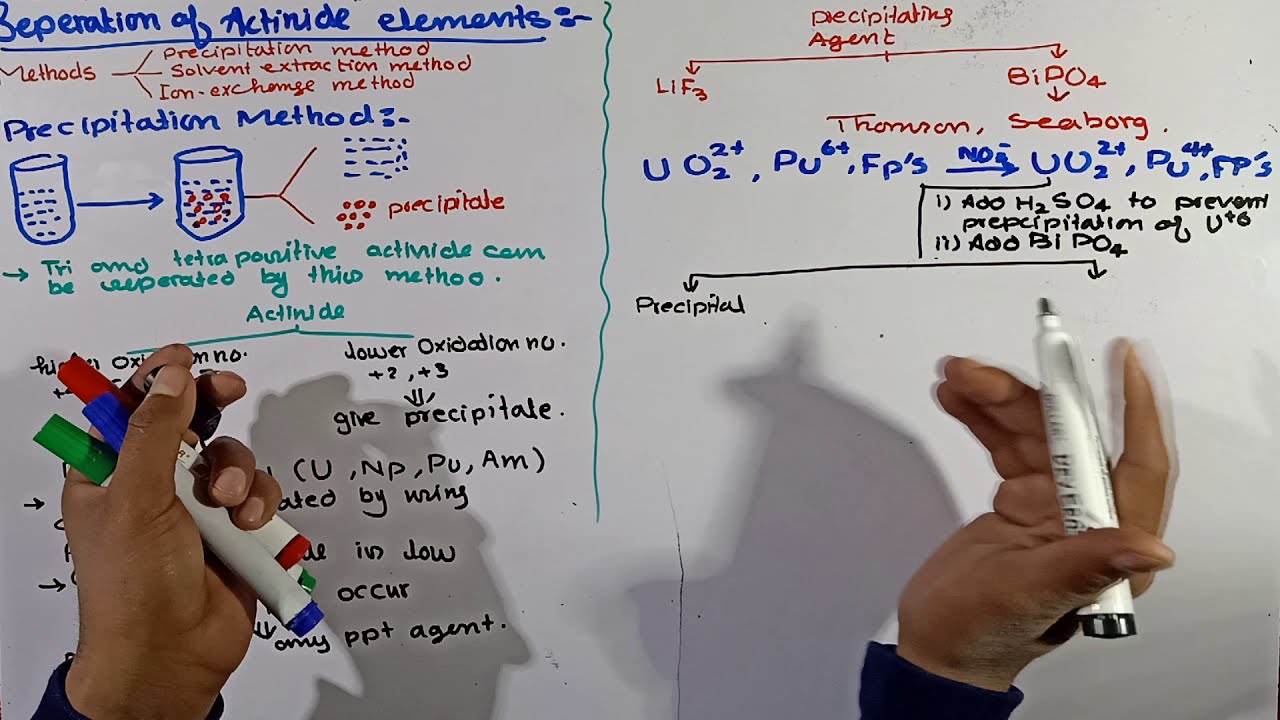 Seperation of Actinide elements:-
Methods
Precipitation method
Solvent extraction method
Ion-exchange method
Precipitation Method:-
precipitate
→ Tri and tetra positive actinide can
be seperated by this method.
Actinide
higher Oxidation no.
lower Oxidation no.
+2, +3
give precipitate.
(U, Np, Pu, Am)
→ ated by using
in low
→ occur
any ppt agent.
precipitating
Agent
LiF3
BiPO4
Thomson, Seaborg.
UO2 2+, Pu6+, FP's NO2- → UO2 2+, Pu4+, FP's
i) Add H2SO4 to prevent
prepcipitation of U+6
ii) Add BiPO4
Precipital